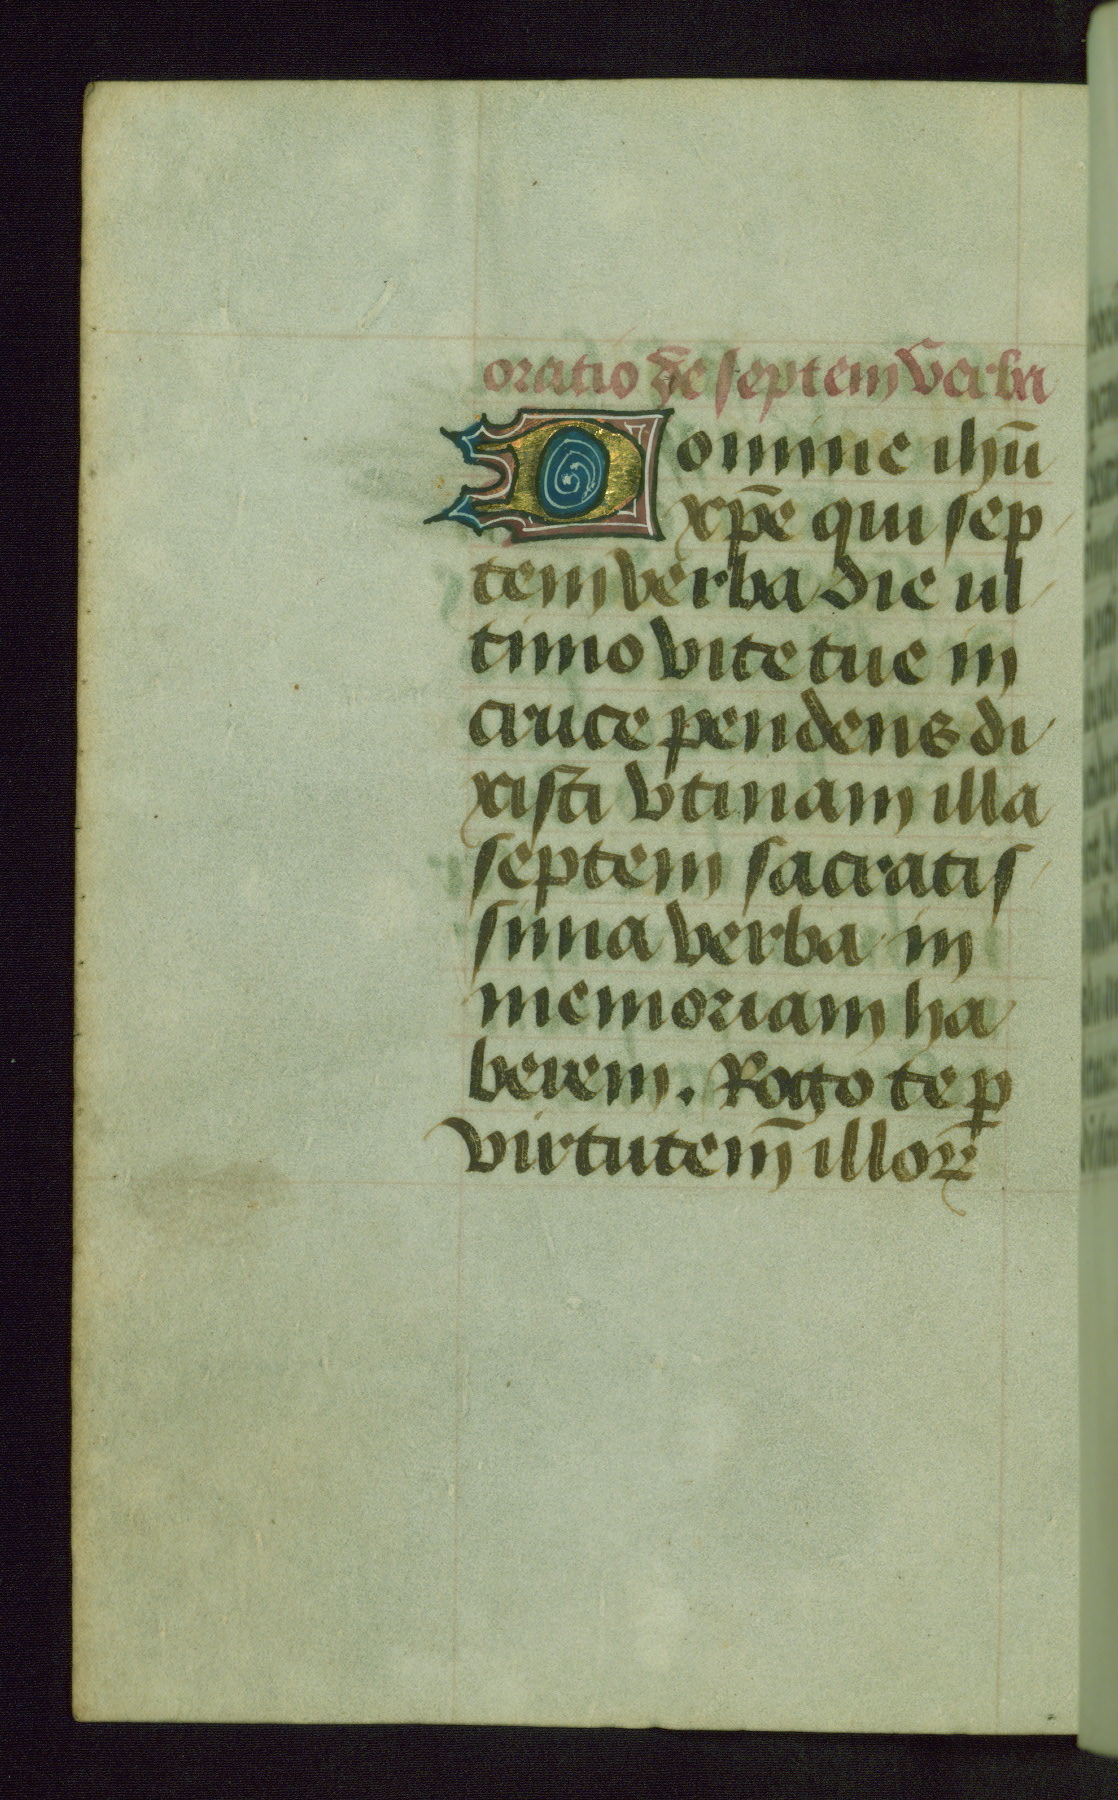 oratio de septem verba
Domine ihū
xp̄e qui sep
tem verba die ul
timo vite tue in
cruce pendens di
xisti vtinam illa
septem sacratis
sima verba in
memoriam ha
berem. Rogo te ꝑ
virtutem̄ illoꝝ